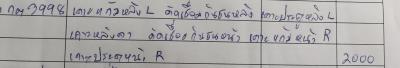 กต 3998 เคาะแก้มหลัง L ตัดเชื่อมกันชนหลัง เคาะประตูหลัง L
เคาะหลังคา ตัดเชื่อมกันชนหน้า เคาะแก้มหน้า R
เคาะประตูหน้า R 2000